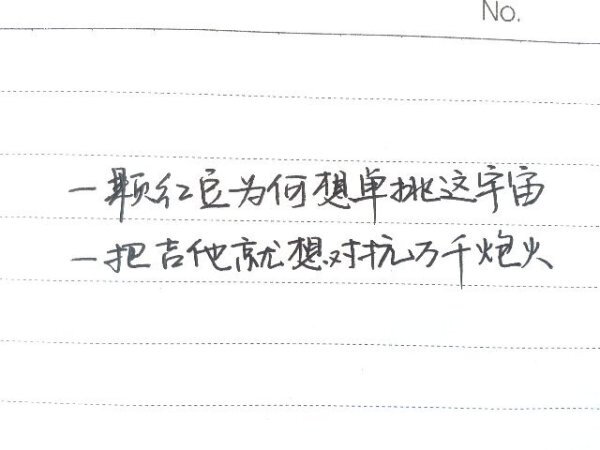 No.
一颗红豆为何想单挑这宇宙
一把吉他就想对抗万千炮火